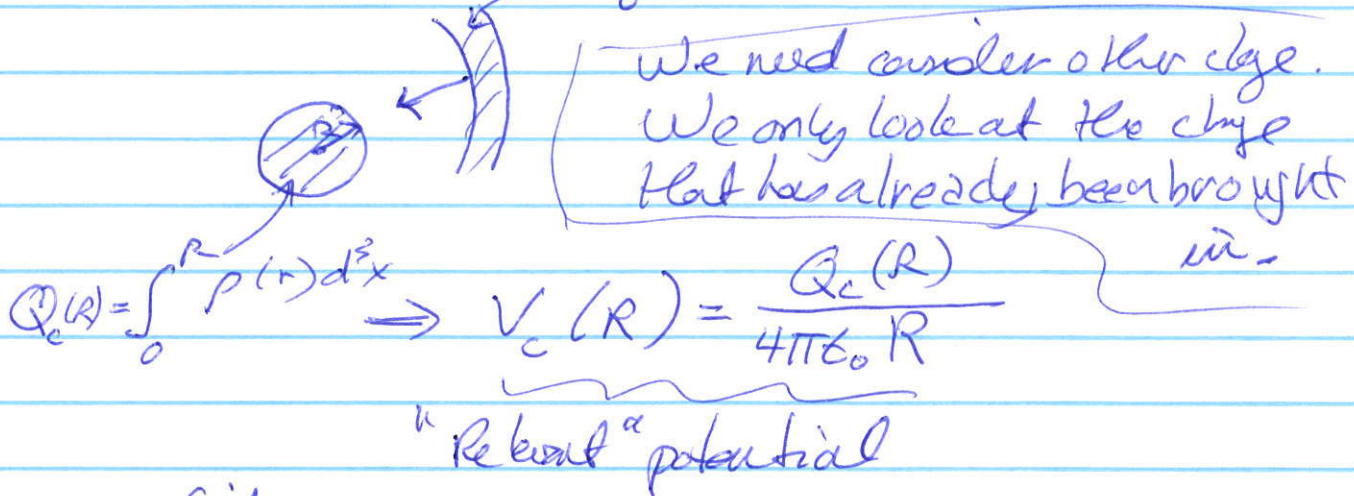 We need consider other chge.
We only look at the chge
that has already been brought
in.
R
Q_c(R) = ∫_0^R ρ(r) d³x ⟹ V_c(R) = Q_c(R) / 4πε₀ R
"Relevant" potential